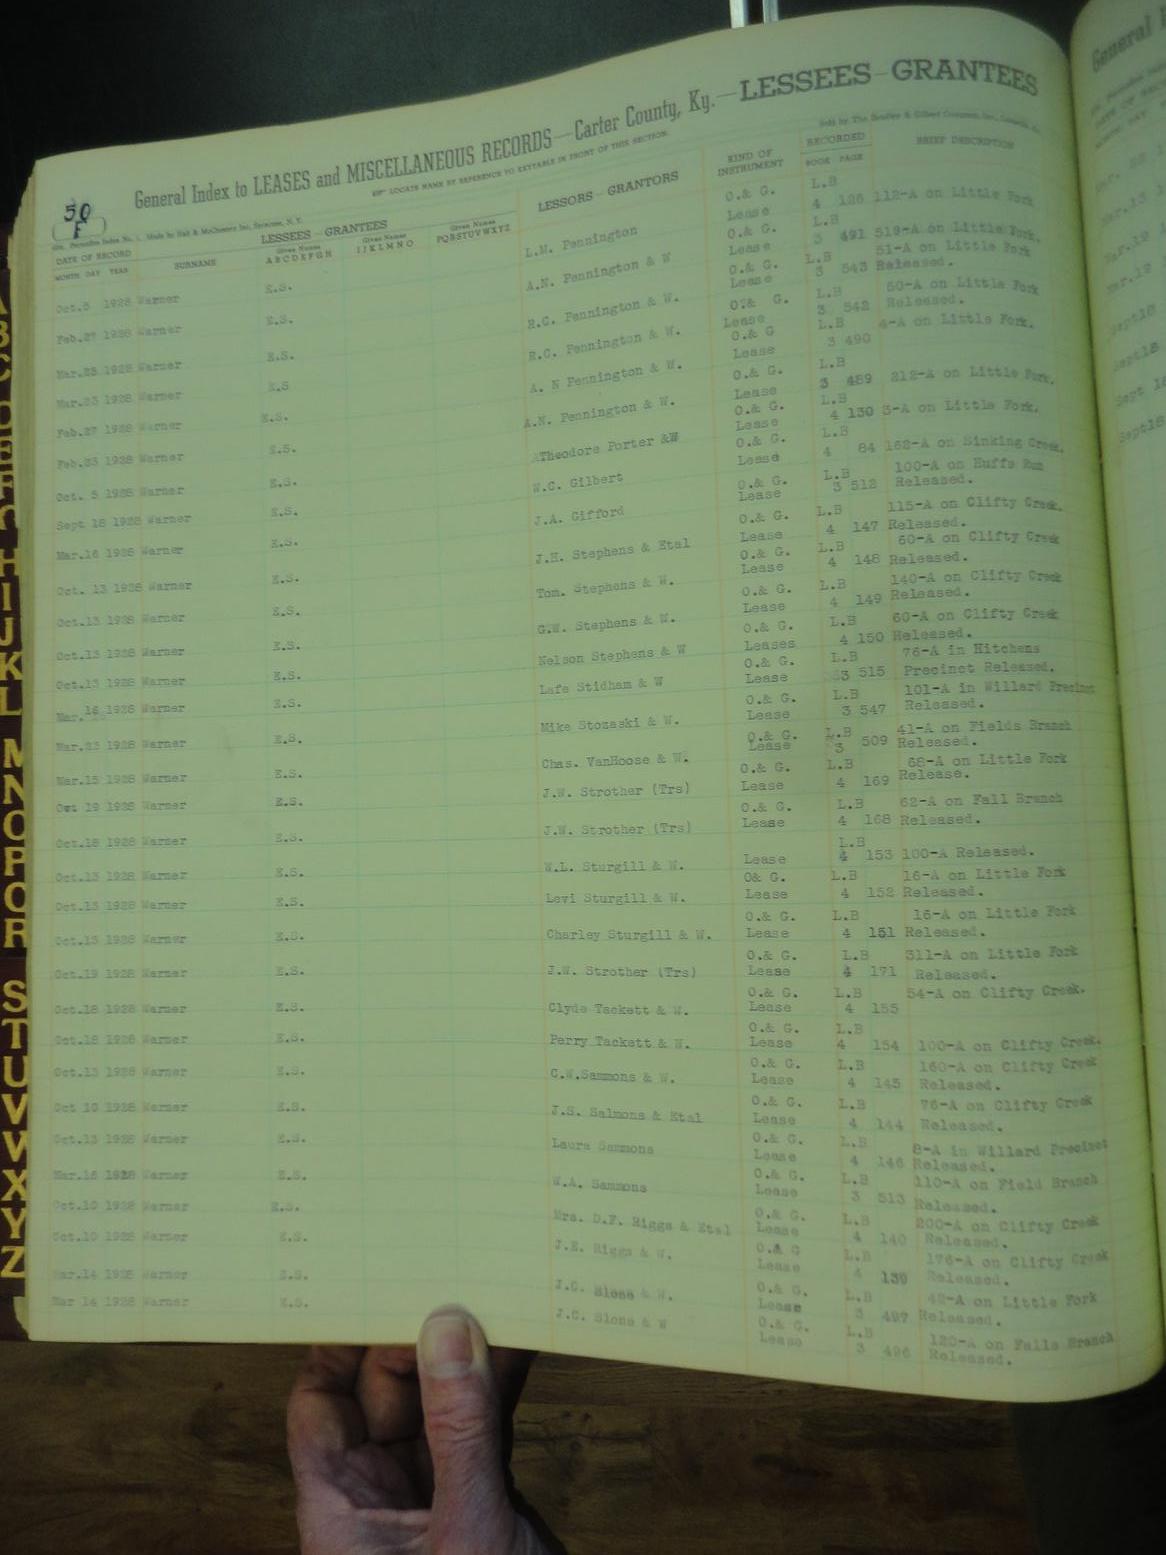 General Index to LEASES and MISCELLANEOUS RECORDS—Carter County, Ky.—LESSEES—GRANTEES
LOCATE NAME BY REFERENCE TO KEYTABLE IN FRONT OF THIS SECTION.
50
F
DATE OF RECORD
MONTH DAY YEAR
SURNAME
LESSEES - GRANTEES
Given Names ABCDEFGH
Given Names IJKLMNO
Given Names PQRSTUVWXYZ
LESSORS - GRANTORS
KIND OF INSTRUMENT
RECORDED
BOOK PAGE
BRIEF DESCRIPTION
Oct.5 1928 Warner E.S. L.M. Pennington O.& G. Lease L.B 4 126 112-A on Little Fork
Feb.27 1928 Warner E.S. A.N. Pennington & W O.& G. Lease L.B 3 491 519-A on Little Fork.
Mar.23 1928 Warner E.S. R.C. Pennington & W. O.& G. Lease L.B 3 543 51-A on Little Fork Released.
Mar.23 1928 Warner E.S R.C. Pennington & W. O.& G. Lease L.B 3 542 50-A on Little Fork Released.
Feb.27 1928 Warner E.S. A. N Pennington & W. O.& G Lease L.B 3 490 4-A on Little Fork.
Feb.23 1928 Warner E.S. A.N. Pennington & W. O.& G. Lease L.B 3 489 212-A on Little Fork.
Oct. 5 1928 Warner E.S. Theodore Porter &W O.& G. Lease L.B 4 130 3-A on Little Fork.
Sept 18 1928 Warner E.S. W.C. Gilbert O.& G. Lease L.B 4 84 162-A on Sinking Creek.
Mar.16 1928 Warner E.S. J.A. Gifford O.& G. Lease L.B 3 512 100-A on Huffs Run Released.
Oct. 13 1928 Warner E.S. J.H. Stephens & Etal O.& G. Lease L.B 4 147 115-A on Clifty Creek. Released.
Oct.13 1928 Warner E.S. Tom. Stephens & W. O.& G. Lease L.B 4 148 60-A on Clifty Creek Released.
Oct.13 1928 Warner E.S. G.W. Stephens & W. O.& G. Lease L.B 4 149 140-A on Clifty Creek Released.
Oct.13 1928 Warner E.S. Nelson Stephens & W O.& G. Leases L.B 4 150 60-A on Clifty Creek Released.
Mar. 16 1928 Warner E.S. Lafe Stidham & W O.& G. Lease L.B 3 515 76-A in Hitchens Precinct Released.
Mar.23 1928 Warner E.S. Mike Stozaski & W. O.& G. Lease L.B 3 547 101-A in Willard Precinct Released.
Mar.15 1928 Warner E.S. Chas. VanHoose & W. O.& G. Lease L.B 3 509 41-A on Fields Branch Released.
Oct 19 1928 Warner E.S. J.W. Strother (Trs) O.& G. Lease L.B 4 169 68-A on Little Fork Release.
Oct.18 1928 Warner E.S. J.W. Strother (Trs) O.& G. Lease L.B 4 168 62-A on Fall Branch Released.
Oct.13 1928 Warner E.S. W.L. Sturgill & W. Lease L.B 4 153 100-A Released.
Oct.13 1928 Warner E.S. Levi Sturgill & W. O& G. Lease L.B 4 152 16-A on Little Fork Released.
Oct.13 1928 Warner E.S. Charley Sturgill & W. O.& G. Lease L.B 4 151 16-A on Little Fork Released.
Oct.19 1928 Warner E.S. J.W. Strother (Trs) O.& G. Lease L.B 4 171 311-A on Little Fork Released.
Oct.18 1928 Warner E.S. Clyde Tackett & W. O.& G. Lease L.B 4 155 54-A on Clifty Creek.
Oct.18 1928 Warner E.S. Perry Tackett & W. O.& G. Lease L.B 4 154 100-A on Clifty Creek.
Oct.13 1928 Warner E.S. C.W.Sammons & W. O.& G. Lease L.B 4 145 160-A on Clifty Creek Released.
Oct 10 1928 Warner E.S. J.S. Salmons & Etal O.& G. Lease L.B 4 144 76-A on Clifty Creek Released.
Oct.13 1928 Warner E.S. Laura Sammons O.& G. Lease L.B 4 146 8-A in Willard Precinct Released.
Mar.16 1928 Warner E.S. W.A. Sammons O.& G. Lease L.B 3 513 110-A on Field Branch Released.
Oct.10 1928 Warner E.S. Mrs. D.F. Riggs & Etal O.& G. Lease L.B 4 140 200-A on Clifty Creek Released.
Oct.10 1928 Warner E.S. J.E. Riggs & W. O.& G Lease L.B 4 139 176-A on Clifty Creek Released.
Mar.14 1928 Warner E.S. J.C. Slone & W. O.& G. Lease L.B 3 497 42-A on Little Fork Released.
Mar 14 1928 Warner E.S. J.C. Slone & W O.& G. Lease L.B 3 496 120-A on Falls Branch Released.
A
B
C
D
E
F
G
H
I
J
K
L
M
N
O
P
Q
R
S
T
U
V
W
X
Y
Z